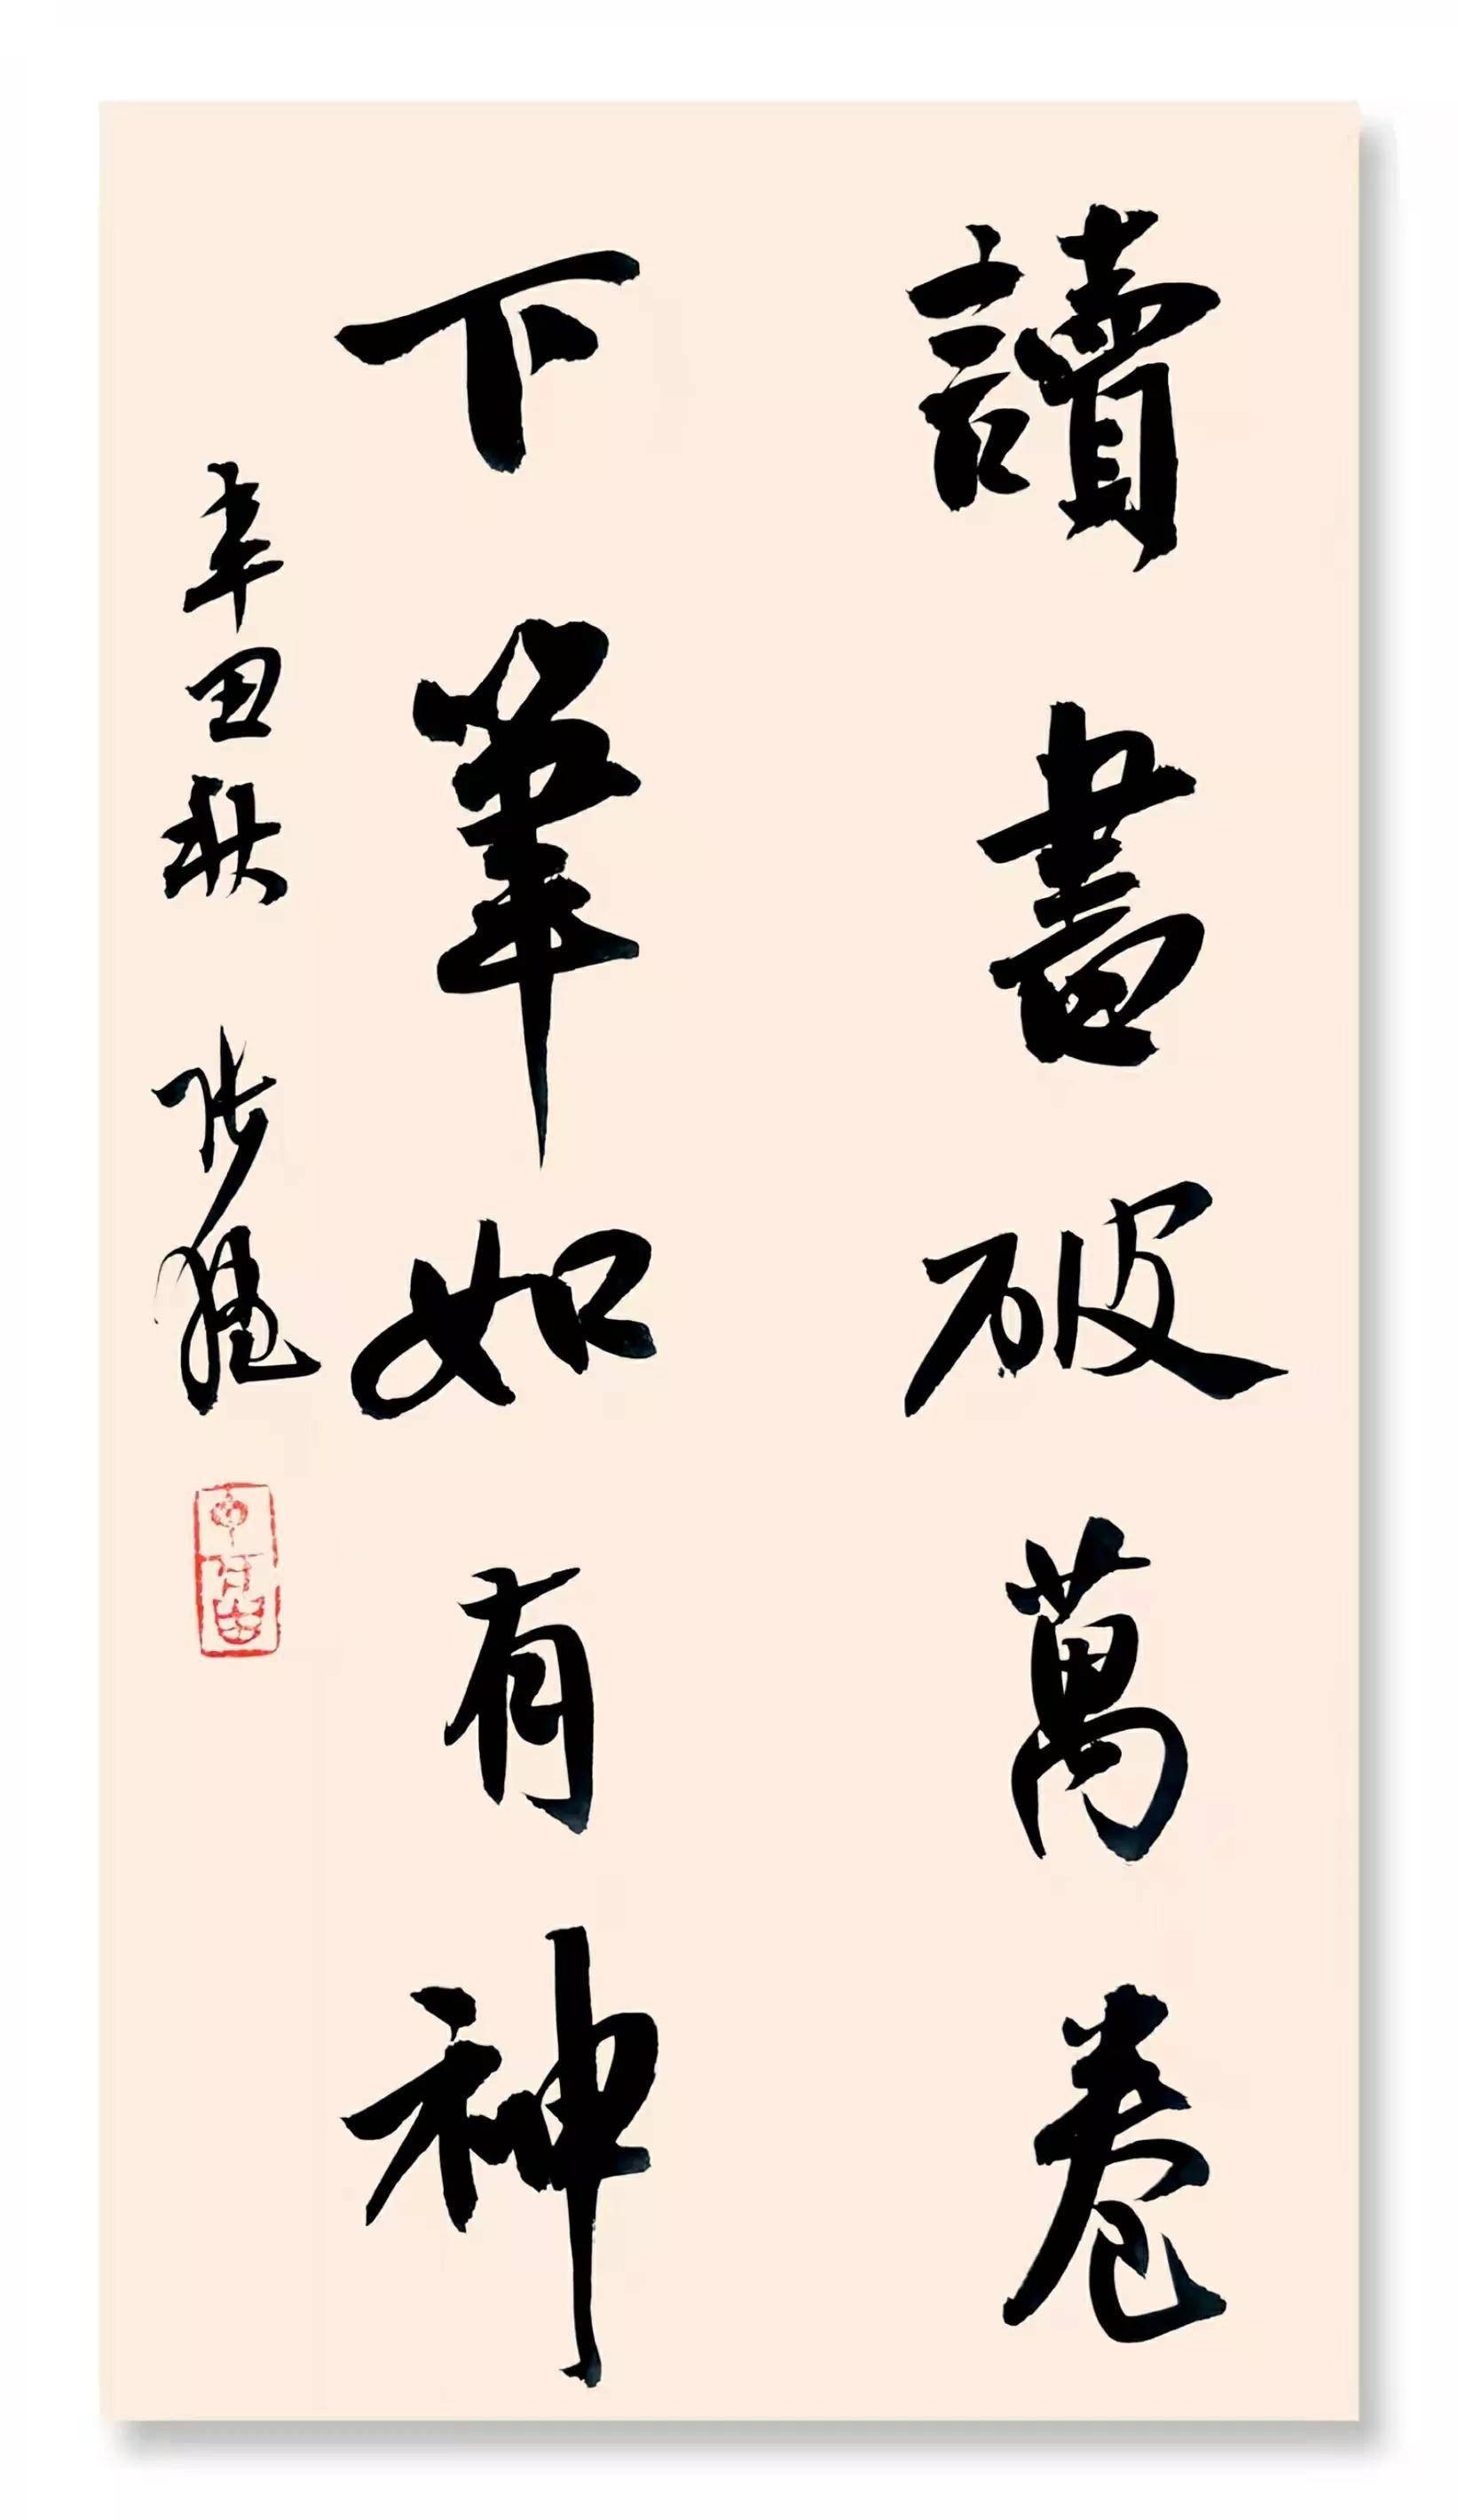 讀書破萬卷
下筆如有神
辛丑秋